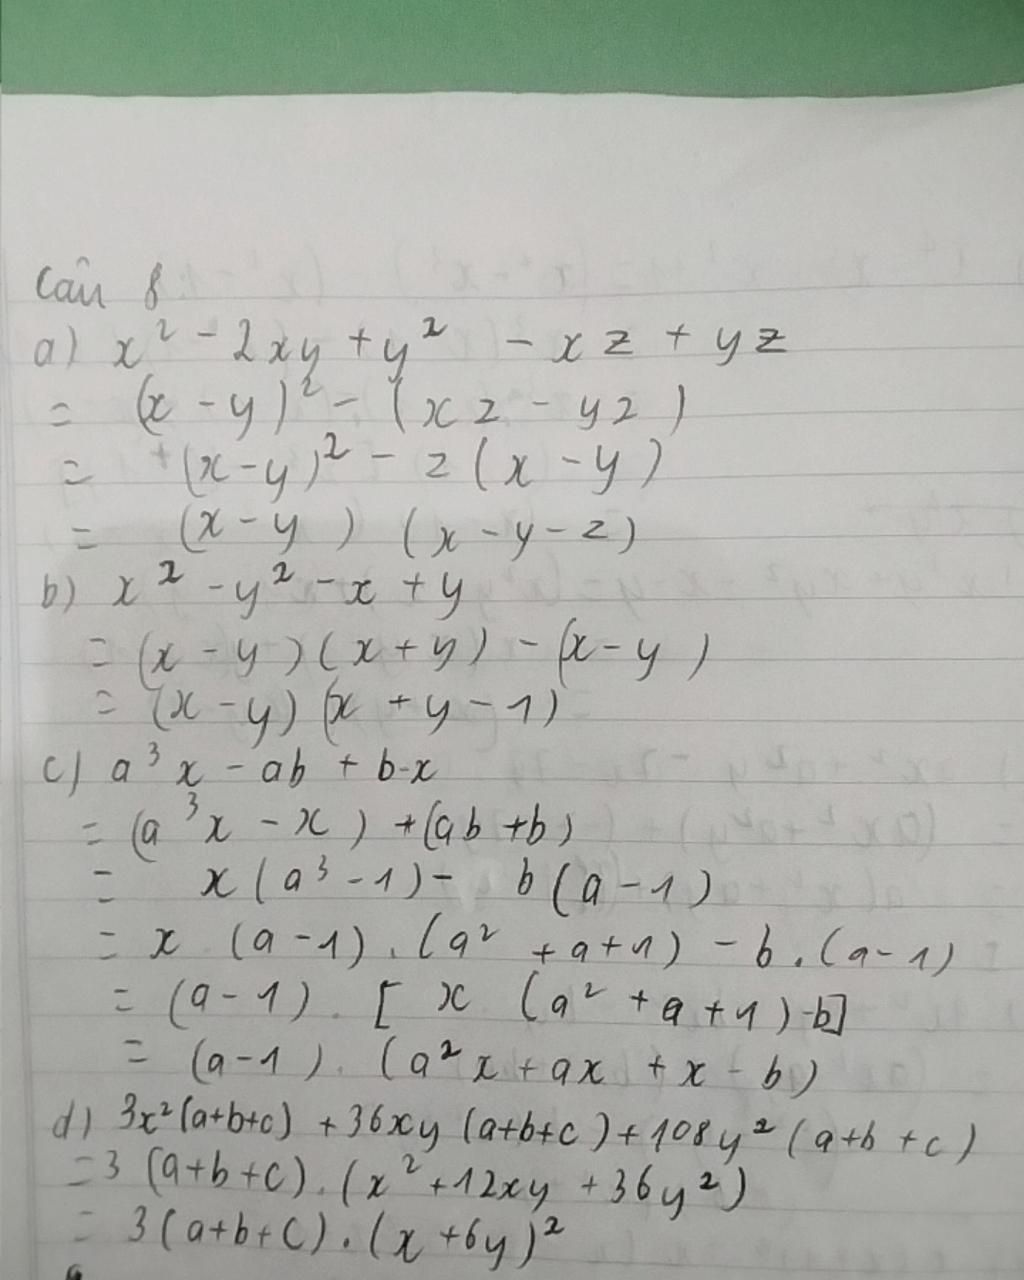 Câu 8
a) x² - 2xy + y² - xz + yz
= (x - y)² - (xz - yz)
= (x - y)² - z(x - y)
= (x - y) (x - y - z)
b) x² - y² - x + y
= (x - y)(x + y) - (x - y)
= (x - y)(x + y - 1)
c) a³x - ab + b - x
= (a³x - x) + (ab + b)
= x(a³ - 1) - b(a - 1)
= x (a - 1) . (a² + a + 1) - b . (a - 1)
= (a - 1) . [x (a² + a + 1) - b]
= (a - 1) . (a²x + ax + x - b)
d) 3x²(a+b+c) + 36xy (a+b+c) + 108y² (a+b+c)
= 3 (a+b+c) . (x² + 12xy + 36y²)
= 3(a+b+c) . (x + 6y)²